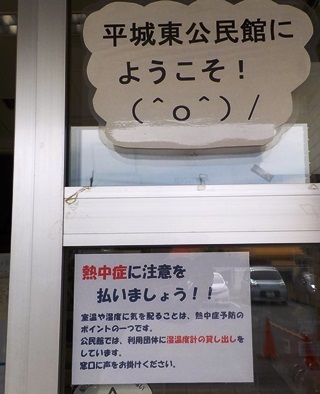 平城東公民館に
ようこそ！
(＾o＾)/
熱中症に注意を
払いましょう！！
室温や湿度に気を配ることは、熱中症予防の
ポイントの一つです。
公民館では、利用団体に湿温度計の貸し出しを
しています。
窓口に声をお掛けください。